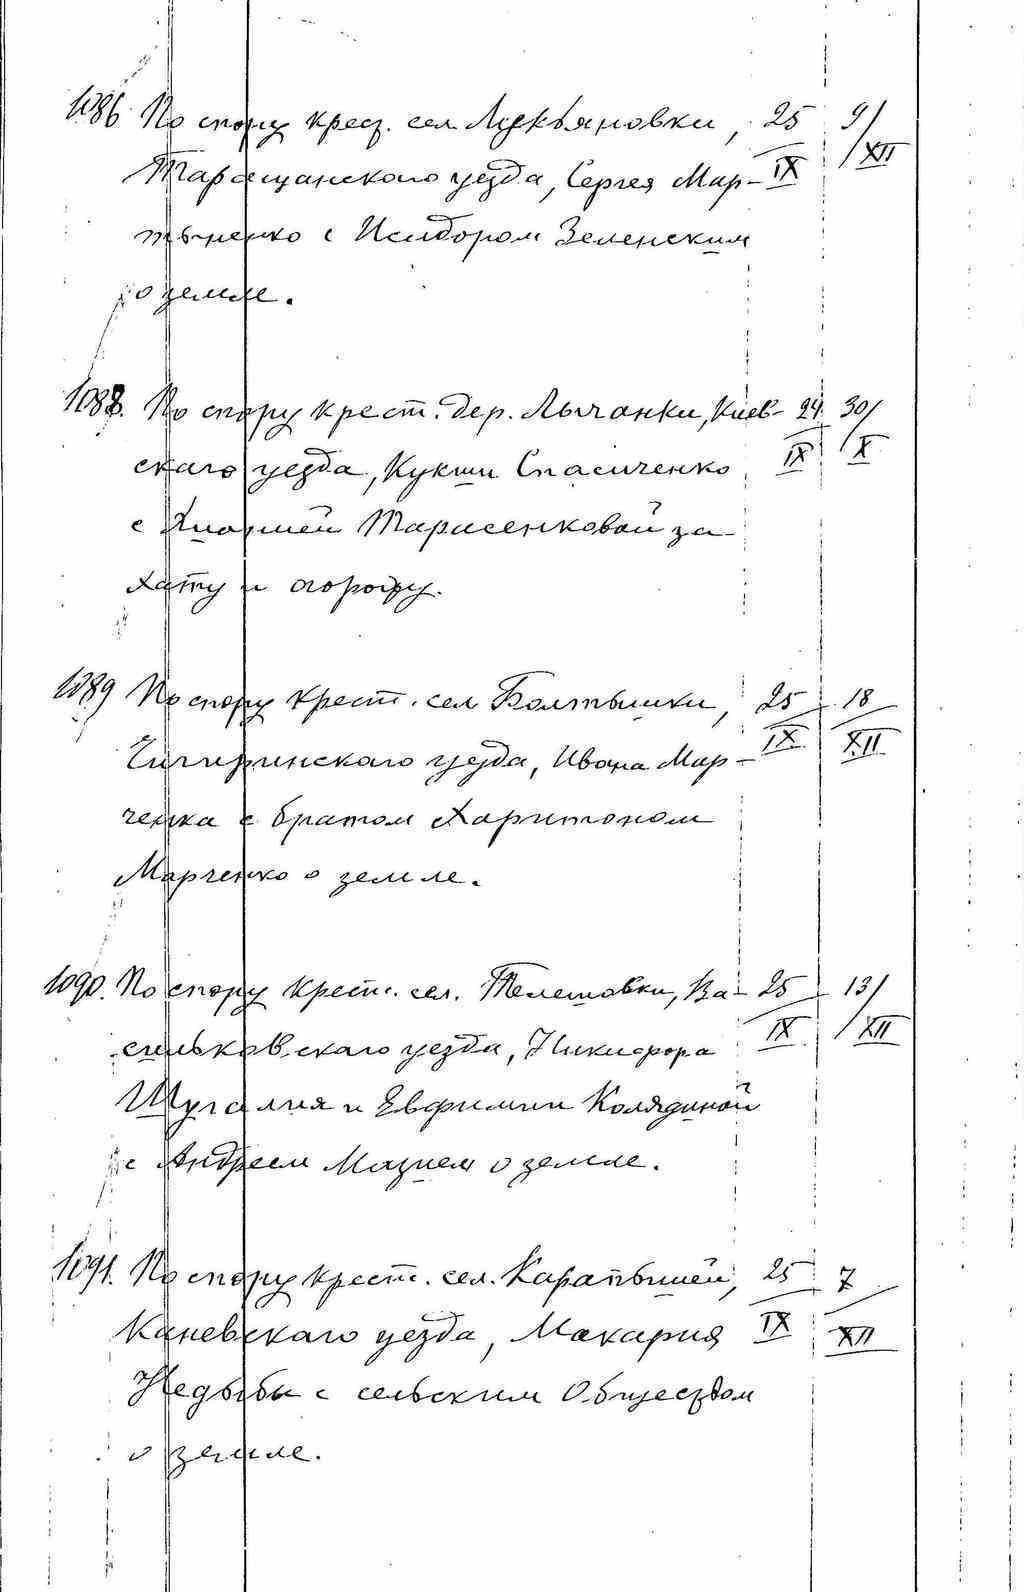 1086 По спору крест. сел. Лукьяновки, 25/IX 9/XII
Таращанского уезда, Сергея Мар-
тыненко с Исидором Зеленским
о земле.
1088. По спору крест. дер. Лычанки, Киев- 24/IX 30/X
ского уезда, Кукши Спасиченко
с Тарасенковой за
хату и огорожу.
1089 По спору крест. сел. Болтышки, 25/IX 18/XII
Чигиринского уезда, Ивана Мар-
ченка с братом Харитоном
Марченко о земле.
1090. По спору крест. сел. Телешовки, Ва- 25/IX 13/XII
сильковского уезда, Никифора
Шугалия и Евфимии Колядиной
с Андреем Мазием о земле.
1091. По спору крест. сел. Карапышей, 25/IX 7/XII
Каневского уезда, Макария
Недыбы с сельским Обществом
о земле.